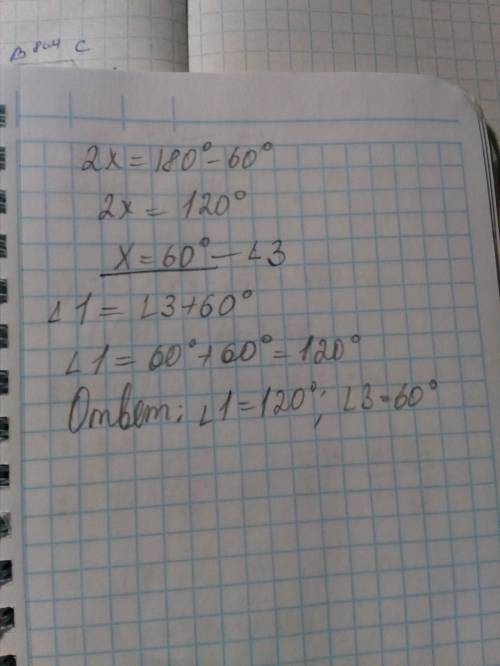 В 8см С
2x = 180° - 60°
2x = 120°
x = 60° - ∠3
∠1 = ∠3 + 60°
∠1 = 60° + 60° = 120°
Ответ: ∠1 = 120°; ∠3 = 60°